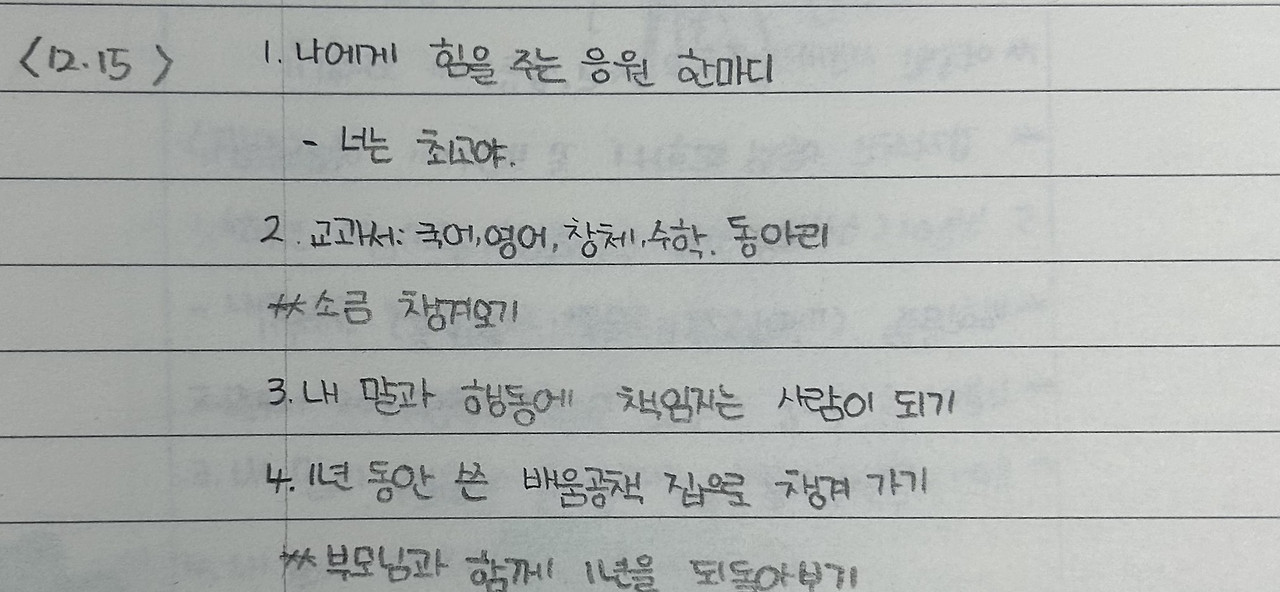 <12.15> 1. 나에게 힘을 주는 응원 한마디
- 너는 최고야.
2. 교과서: 국어, 영어, 창체, 수학. 동아리
** 소금 챙겨오기
3. 내 말과 행동에 책임지는 사람이 되기
4. 1년 동안 쓴 배움공책 집으로 챙겨 가기
** 부모님과 함께 1년을 되돌아보기